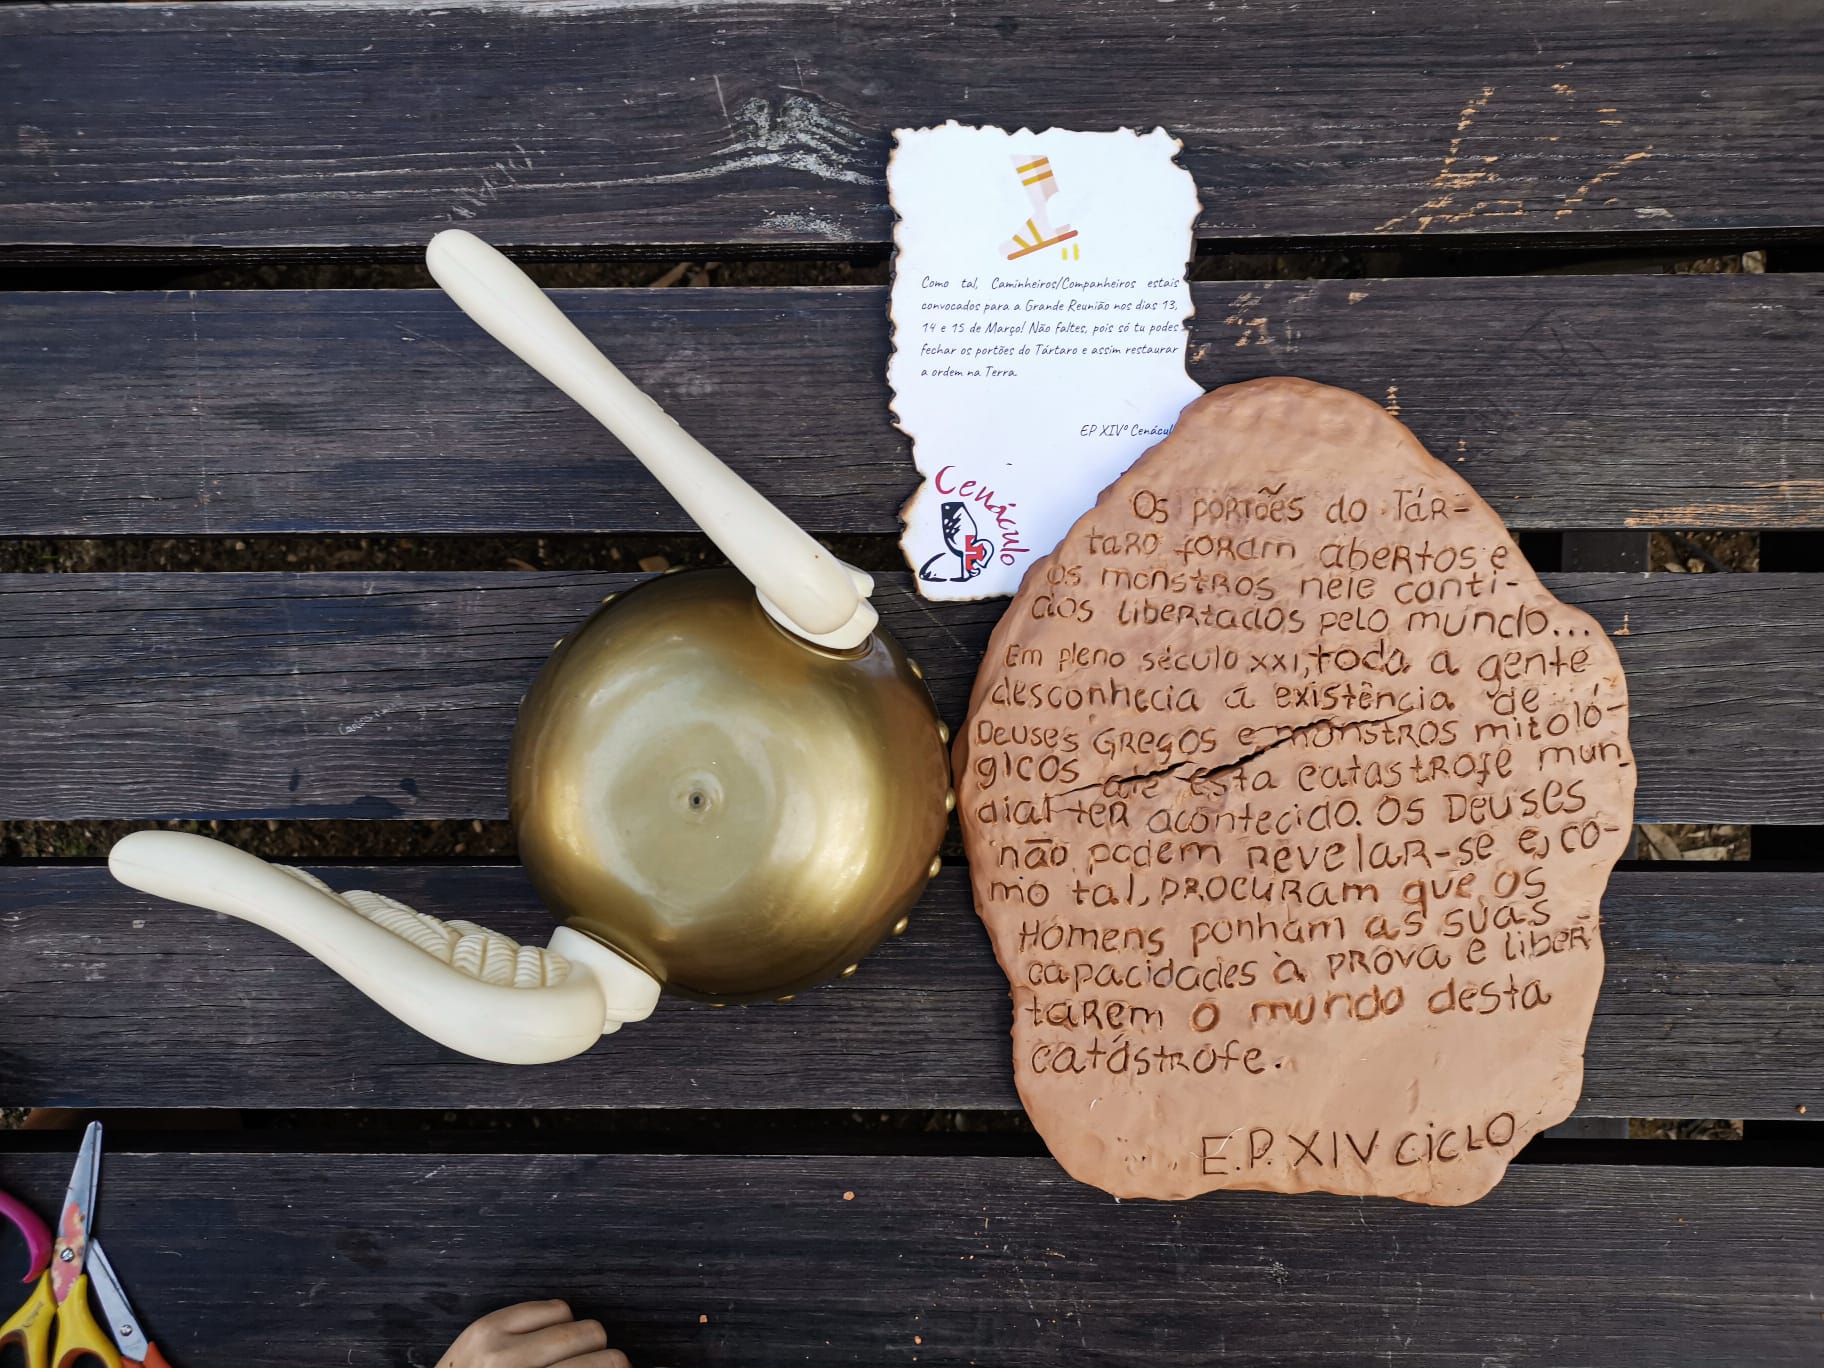 Como tal, Caminheiros/Companheiros estais
convocados para a Grande Reunião nos dias 13,
14 e 15 de Março! Não faltes, pois só tu podes
fechar os portões do Tártaro e assim restaurar
a ordem na Terra.
EP XIVº Cenácul
Cenáculo
Os portões do Tár-
taro foram abertos e
os monstros nele conti-
dos libertados pelo mundo...
Em pleno século XXI, toda a gente
desconhecia a existência de
Deuses Gregos e monstros mitoló-
gicos até esta catastrofe mun-
dial ter acontecido. Os Deuses
não podem revelar-se e, co-
mo tal, procuram que os
Homens ponham as suas
capacidades à prova e liber-
tarem o mundo desta
catástrofe.
E.P. XIV CICLO